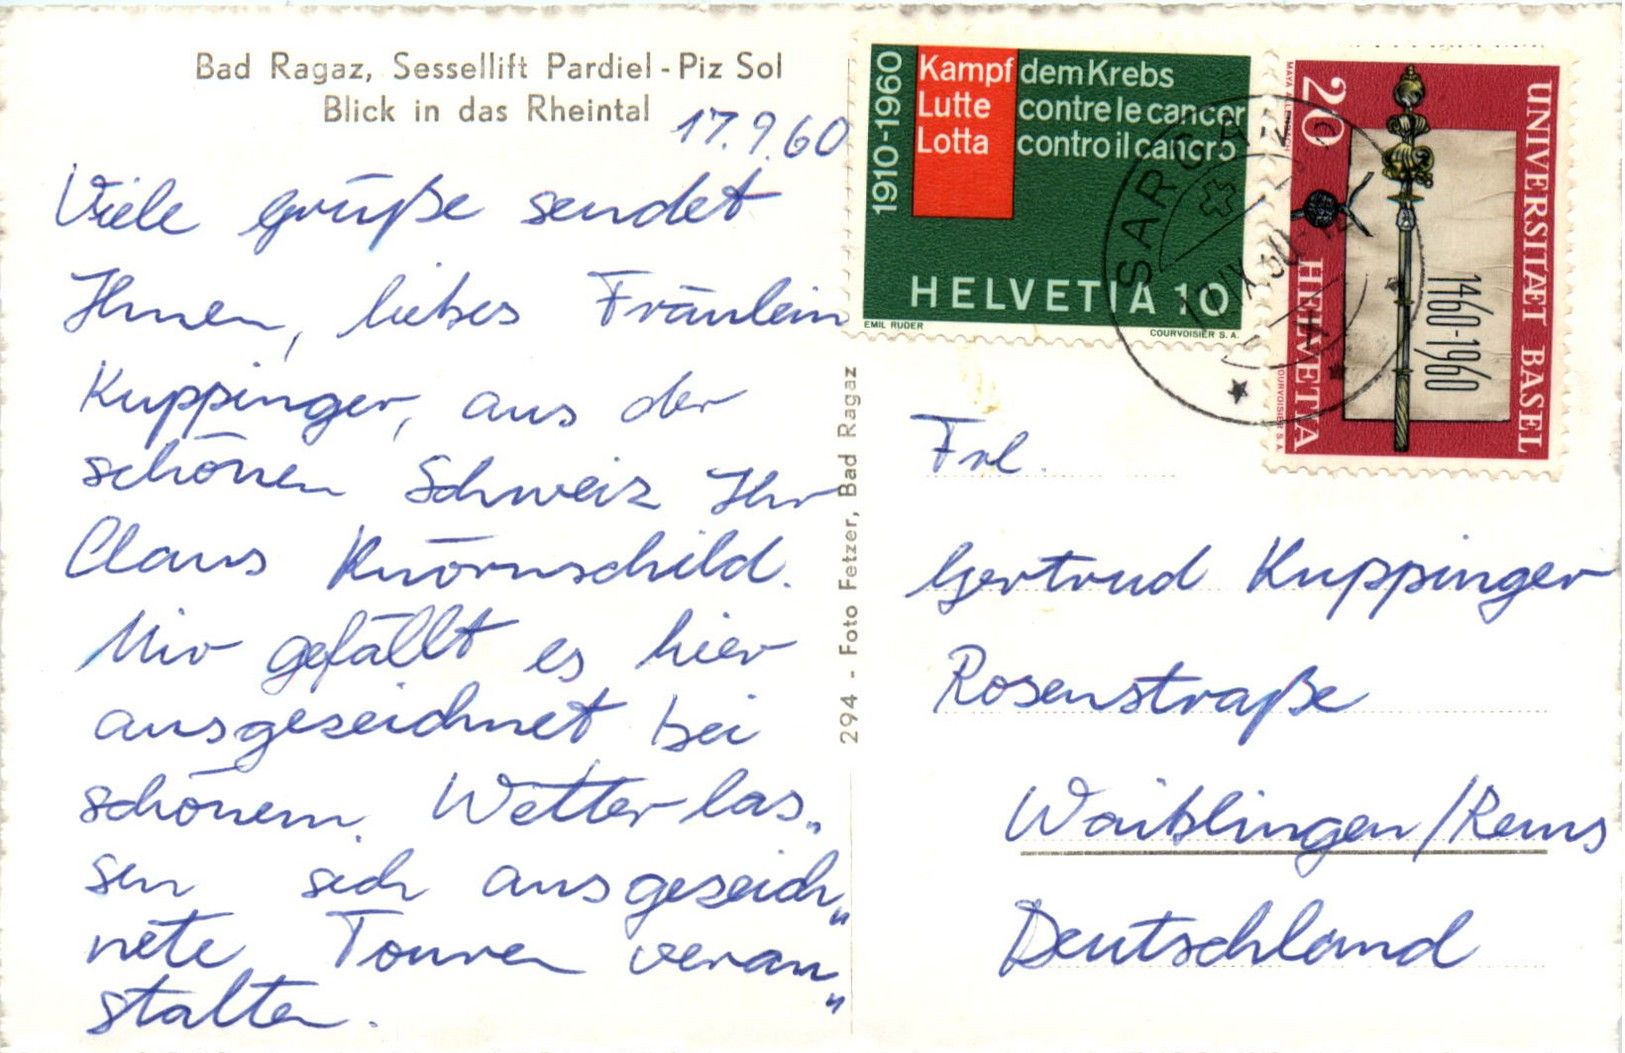 Bad Ragaz, Sessellift Pardiel - Piz Sol
Blick in das Rheintal
17.9.60
Viele grüße sendet
Ihnen, liebes Fräulein
Kuppinger, aus der
schönen Schweiz Ihr
Claus Knörnschild.
Mir gefällt es hier
ausgezeichnet bei
schönem Wetter las„
sen sich ausgezeich„
nete Touren veran„
stalten.
294 - Foto Fetzer, Bad Ragaz
1910-1960
Kampf dem Krebs
Lutte contre le cancer
Lotta contro il cancro
HELVETIA 10
EMIL RUDER
COURVOISIER S.A.
SARGANS
UNIVERSITÆT BASEL
1460-1960
20 HELVETIA
COURVOISIER S.A.
Frl.
Gertrud Kuppinger
Rosenstraße
Waiblingen/Rems
Deutschland